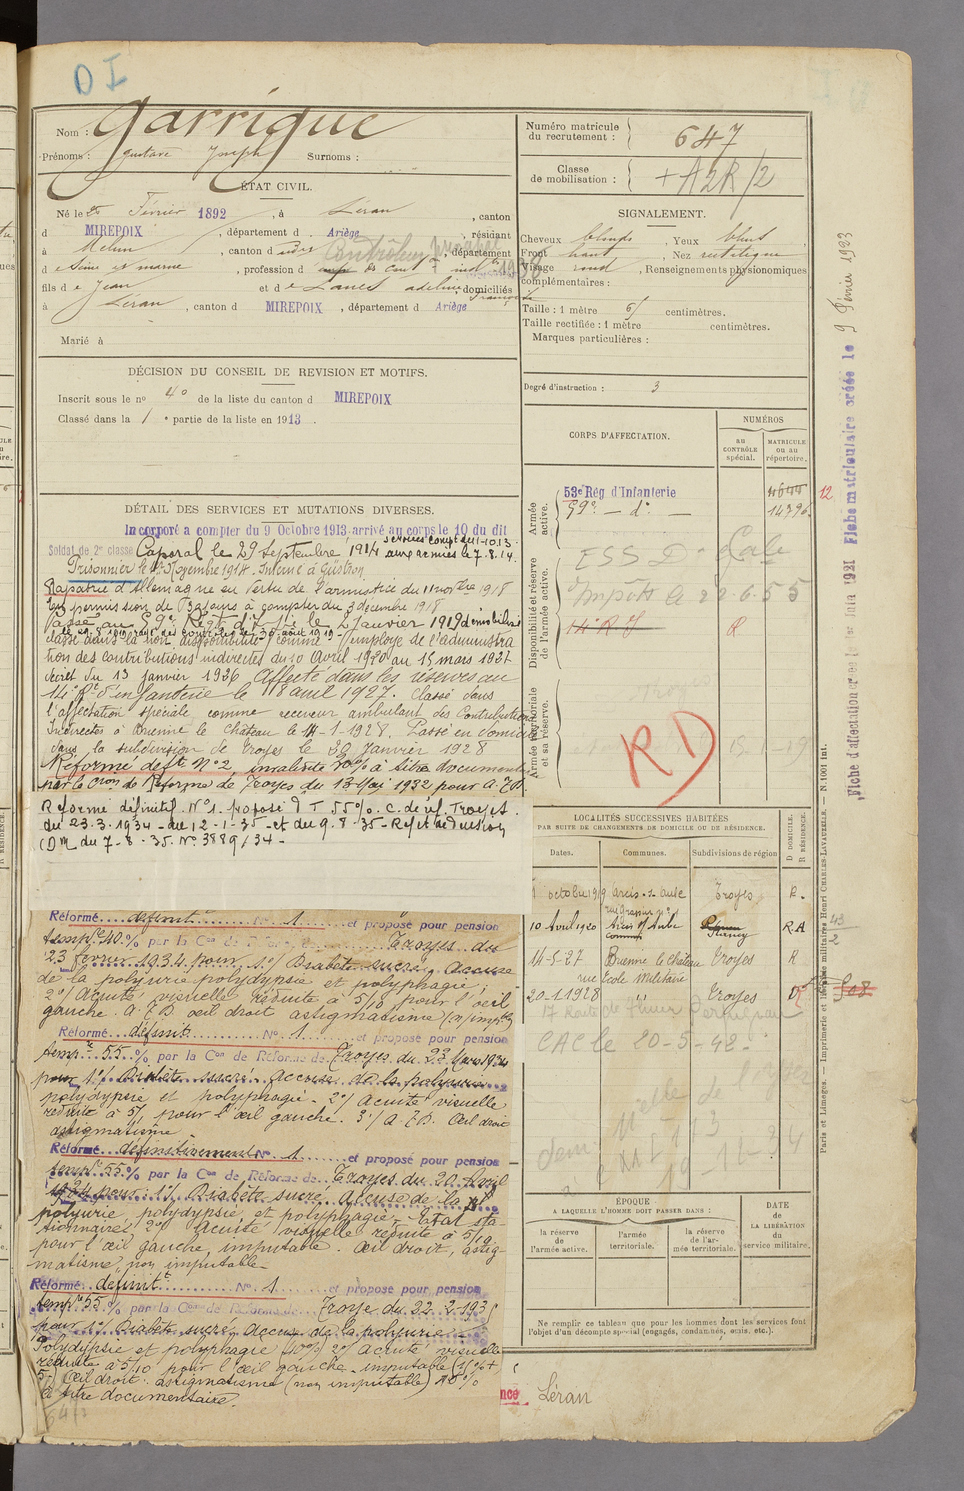 OI
Nom : Garrigue
Prénoms : Gustave Joseph Surnoms :
ÉTAT CIVIL.
Né le 25 Février 1892, à Léran, canton
d MIREPOIX, département d Ariège, résidant
à Melun, canton d udos, département
d e Seine et marne, profession d des Contons indtes
Contrôleur principal
1938
fils d e Jean et d e Lanes adeline Françoise, domiciliés
à Léran, canton d MIREPOIX, département d Ariège
Marié à
DÉCISION DU CONSEIL DE REVISION ET MOTIFS.
Inscrit sous le no 40 de la liste du canton d MIREPOIX
Classé dans la 1e partie de la liste en 1913.
DÉTAIL DES SERVICES ET MUTATIONS DIVERSES.
Incorporé a compter du 9 Octobre 1913 arrivé au corps le 10 du dit
services compt du 1-10.13
Soldat de 2e classe Caporal le 29 Septembre 1914 aux armées le 7.8.14
Prisonnier le Novembre 1914. Interné à Güstrow
Rapatrié d'Allemagne en vertu de l'armistice du 11 novbre 1918
En permission de 30 jours à compter du 3 décembre 1918
Passé au 59e Régt d'Inf. le 2 Janvier 1919 démobilisé
classé dans la non disponibilité comme employé de l'administra
tion des contributions indirectes du 10 Avril 1920 au 15 mars 1927
décret du 13 janvier 1926 Affecté dans les réserves au
14e Rt d'infanterie le 18 avril 1927. Classé dans
l'affectation spéciale comme receveur ambulant des Contributions
Indirectes à Brienne le Château le 14-1-1928. Passé en domicile
dans la subdivision de Troyes le 30 Janvier 1928
Réformé deft No 2 invalidité 30% à titre documentaire
par la Cion de Réforme de Troyes du 13 Mai 1932 pour A.F.D.
Réforme définitif. No 1. proposé P T 55%. C. de réf. Troyes.
du 23.3.1934 - du 12-1-35 - et du 9.8.35 -
DM du 7-8-35. No 3889/34 -
Réformé définit No 1 et proposé pour pension
tempre 40 % par la Con de Réforme de Troyes du
23 février 1934 pour 1o/ Diabète sucré, accuse
de la polyurie polydypsie et polyphagie ;
2o/ Acuité visuelle réduite à 5/10 pour l'œil
gauche. A.F.D. œil droit astigmatisme (n/imple)
Réformé définit No 1 et proposé pour pension
tempre 55 % par la Con de Réforme de Troyes du 23 Mars 1934
pour 1o/ Diabète sucré accuse de la polyurie
polydypsie et polyphagie - 2o/ Acuité visuelle
réduite à 5/ pour l'œil gauche. 3o/ A.F.D. Œil droit
astigmatisme
Réformé définitivement No 1 et proposé pour pension
tempre 55 % par la Con de Réforme de Troyes du 20 Avril
1934 pour 1o/ Diabète sucré, accuse de la
polyurie, polydypsie et polyphagie, - Etat sta-
tionnaire 2o Acuité visuelle réduite à 5/10
pour l'œil gauche, imputable. Œil droit, astig-
matisme, non imputable -
Réformé définit No 1 et proposé pour pension
tempre 55 % par la Con de Réforme de Troye du 22.2.1935
pour 1o/ Diabète sucré, accuse de la polyurie -
Polydypsie et polyphagie 40% 2o/ Acuité visuelle
réduite à 5/10 pour l'œil gauche - imputable (15% +
5) Œil droit : astigmatisme (non imputable)
à titre documentaire.
Numéro matricule
du recrutement : 647
Classe
de mobilisation : + A2R/2
SIGNALEMENT.
Cheveux blonds, Yeux bleus
Front haut, Nez rectiligne
Visage rond, Renseignements physionomiques
complémentaires :
Taille : 1 mètre 61 centimètres.
Taille rectifiée : 1 mètre centimètres.
Marques particulières :
Degré d'instruction : 3
CORPS D'AFFECTATION.
NUMÉROS
au
CONTRÔLE
spécial.
MATRICULE
ou au
répertoire.
Armée
active.
53e Rég d'Infanterie 4644 12
59e - do - 14796
Disponibilité et réserve
de l'armée active.
ESS Do Cale
Impôts le 22.6.55
14e R I R
Armée territoriale
et sa réserve.
RD
LOCALITÉS SUCCESSIVES HABITÉES
PAR SUITE DE CHANGEMENTS DE DOMICILE OU DE RÉSIDENCE.
Dates. Communes. Subdivisions de région D DOMICILE. R RÉSIDENCE.
1 octobre 1919 Arcis-s-aube Troyes R.
10 Avril 1920 Arcis s/ Aube RA
14-5-27 Brienne le Château Troyes R
rue Ecole Militaire
20-1-1928 " Troyes D
CAC le 20-5-42-
ÉPOQUE
A LAQUELLE L'HOMME DOIT PASSER DANS :
la réserve
de
l'armée active.
l'armée
territoriale.
la réserve
de l'ar-
mée territoriale.
DATE
de
LA LIBÉRATION
du
service militaire.
Ne remplir ce tableau que pour les hommes dont les services font
l'objet d'un décompte spécial (engagés, condamnés, omis, etc.).
Léran
Fiche matriculaire créée le 9 Février 1923
Fiche d'affectation créée le 1er Juin 1921
Paris et Limoges. — Imprimerie et librairie militaires Henri CHARLES-LAVAUZELLE. — N. 1001 int.